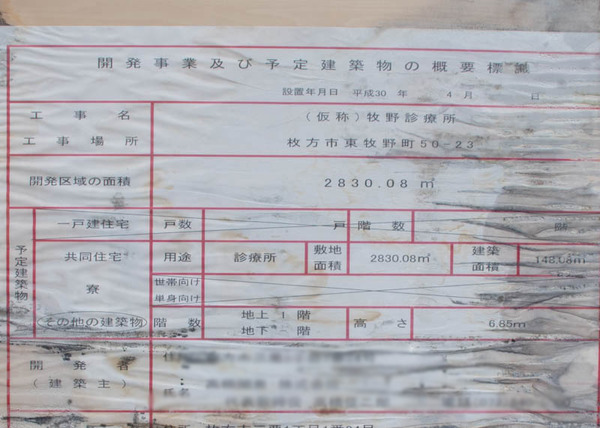 開発事業及び予定建築物の概要標識
設置年月日 平成30年 4月 日
工事名 (仮称)牧野診療所
工事場所 枚方市東牧野町50-23
開発区域の面積 2830.08㎡
予定建築物
一戸建住宅 戸数 戸 階数 階
共同住宅 用途 診療所 敷地面積 2830.08㎡ 建築面積 148.08㎡
寮 世帯向け
単身向け
(その他の建築物) 階数 地上 1 階 高さ 6.65m
地下 - 階
開発者
(建築主)
氏名